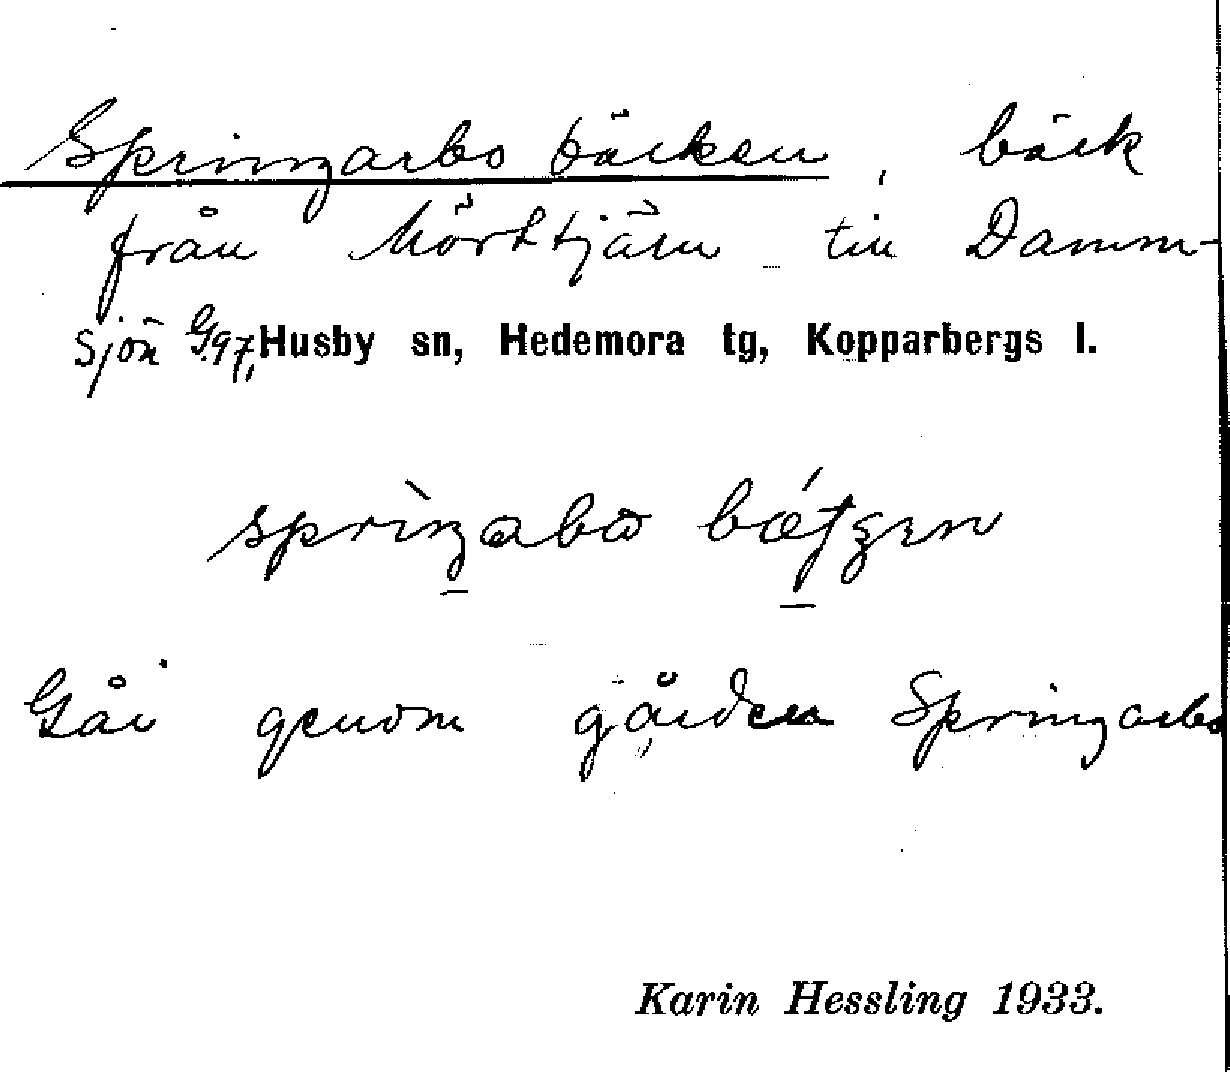 Springarbo bäcken, bäck
från Mörktjärn till Damm-
sjön G.97, Husby sn, Hedemora tg, Kopparbergs l.
Går genom gården Springarbo
Karin Hessling 1933.